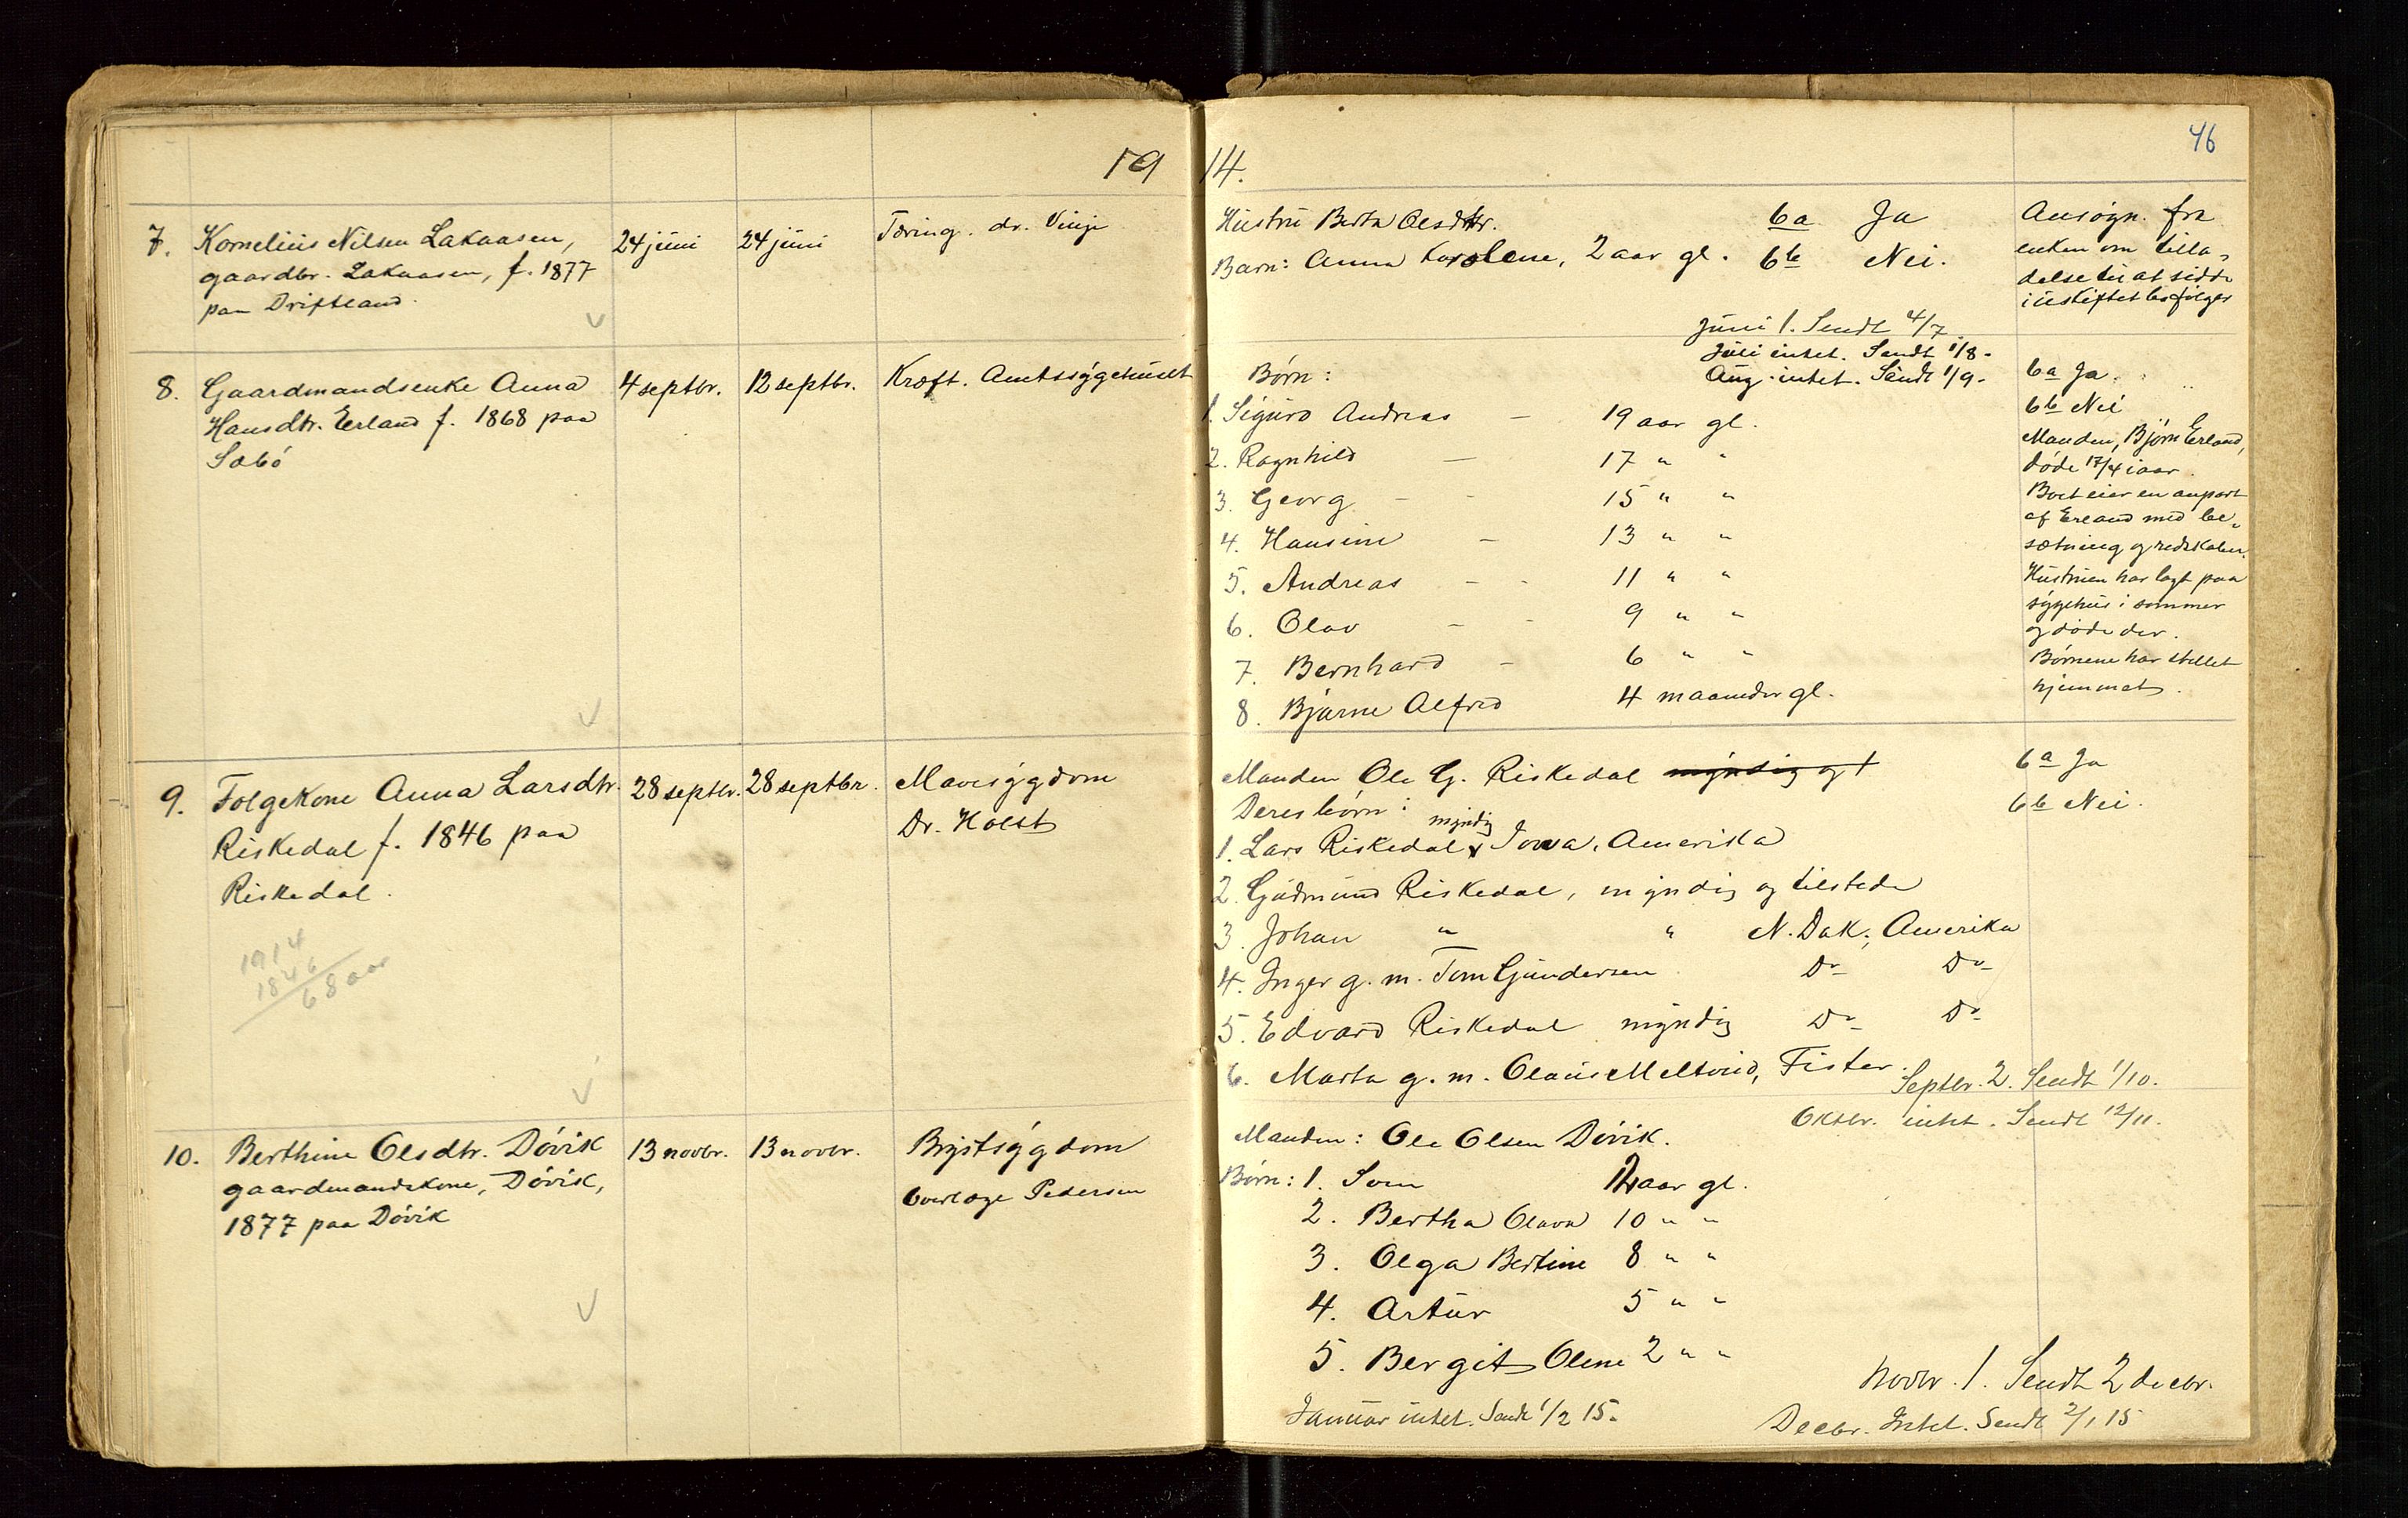 19
14.
46
7. Kornelius Nilsen Lakaasen,
gaardbr. Lakaasen, f. 1877
paa Driftland.
24 juni
24 juni
Tæring. dr. Vinje
Hustru Berta Olesdtr.
Barn: Anna Karolene, 2 aar gl.
6a Ja
6b Nei.
Ansøgn. fra
enken om tilla-
delse til at sidde
i uskiftet bo følger
Juni 1. Sendt 4/7
Juli intet. Sendt 1/8 -
Aug. intet. Sendt 1/9 -
8. Gaardmandsenke Anna
Hansdtr. Erland f. 1868 paa
Sæbø
4 septbr.
12 septbr.
Kræft. Amtssygehuset
Børn:
1. Sigurd Andreas - 19 aar gl.
2. Ragnhild - 17 " "
3. Georg - - 15 " "
4. Hansine - 13 " "
5. Andreas - - 11 " "
6. Olav - - 9 " "
7. Bernhard - 6 " "
8. Bjarne Alfred 4 maaneder gl.
6a Ja.
6b Nei
Manden, Bjørn Erland,
døde 17/4 iaar.
Boet eier en anpart
af Erland med be-
sætning og redskaber.
Hustruen har lagt paa
sygehus i sommer
og døde der.
Børnene har stellet
hjemmet.
9. Folgekone Anna Larsdtr.
Riskedal f. 1846 paa
Riskedal.
1914
1846
68 aar
28 septbr.
28 septbr.
Mavesygdom
Dr. Holst
Manden Ole G. Riskedal myndig og t
Deres børn:
myndig
1. Lars Riskedal, Iowa, Amerika
2. Gudmund Riskedal, myndig og tilstede
3. Johan " " N. Dak., Amerika
4. Inger g. m. Tom Gundersen Do Do
5. Edvard Riskedal myndig Do Do
6. Marta g. m. Olaus Meltveid, Fister.
6a Ja
6b Nei.
Septbr. 2. Sendt 1/10.
Oktbr. intet. Sendt 12/11.
10. Berthine Olsdtr. Døvik
gaardmandskone, Døvik,
1877 paa Døvik
13 novbr.
13 novbr.
Brystsygdom
Overlæge Pedersen
Manden: Ole Olsen Døvik.
Børn: 1. Sven 12 aar gl.
2. Bertha Olava 10 " "
3. Olga Bertine 8 " "
4. Artur 5 " "
5. Bergit Olene 2 " "
Novbr. 1. Sendt 2 decbr.
Decbr. Intet. Sendt 2/1 15
Januar intet. Sendt 1/2 15.